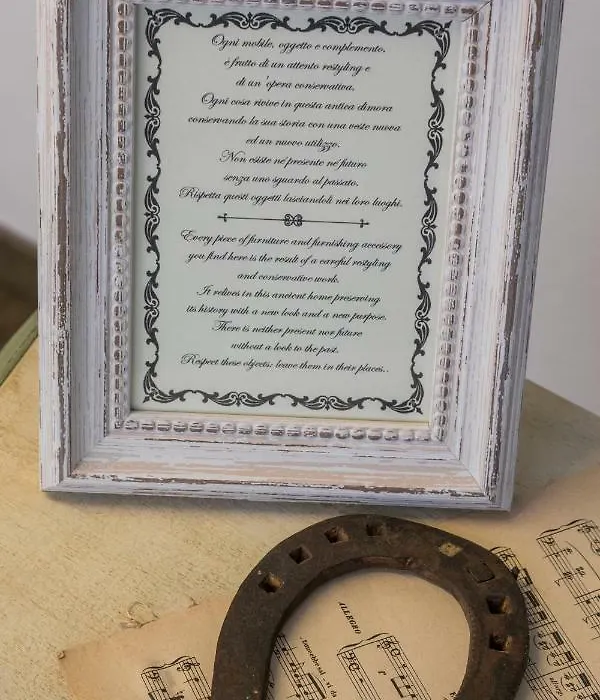 Ogni mobile, oggetto e complemento,
è frutto di un attento restyling e
di un'opera conservativa.
Ogni cosa rivive in questa antica dimora
conservando la sua storia con una veste nuova
ed un nuovo utilizzo.
Non esiste né presente né futuro
senza uno sguardo al passato.
Rispetta questi oggetti lasciandoli nei loro luoghi.
Every piece of furniture and furnishing accessory
you find here is the result of a careful restyling
and conservative work.
It relives in this ancient home preserving
its history with a new look and a new purpose.
There is neither present nor future
without a look to the past.
Respect these objects: leave them in their places..
ALLEGRO